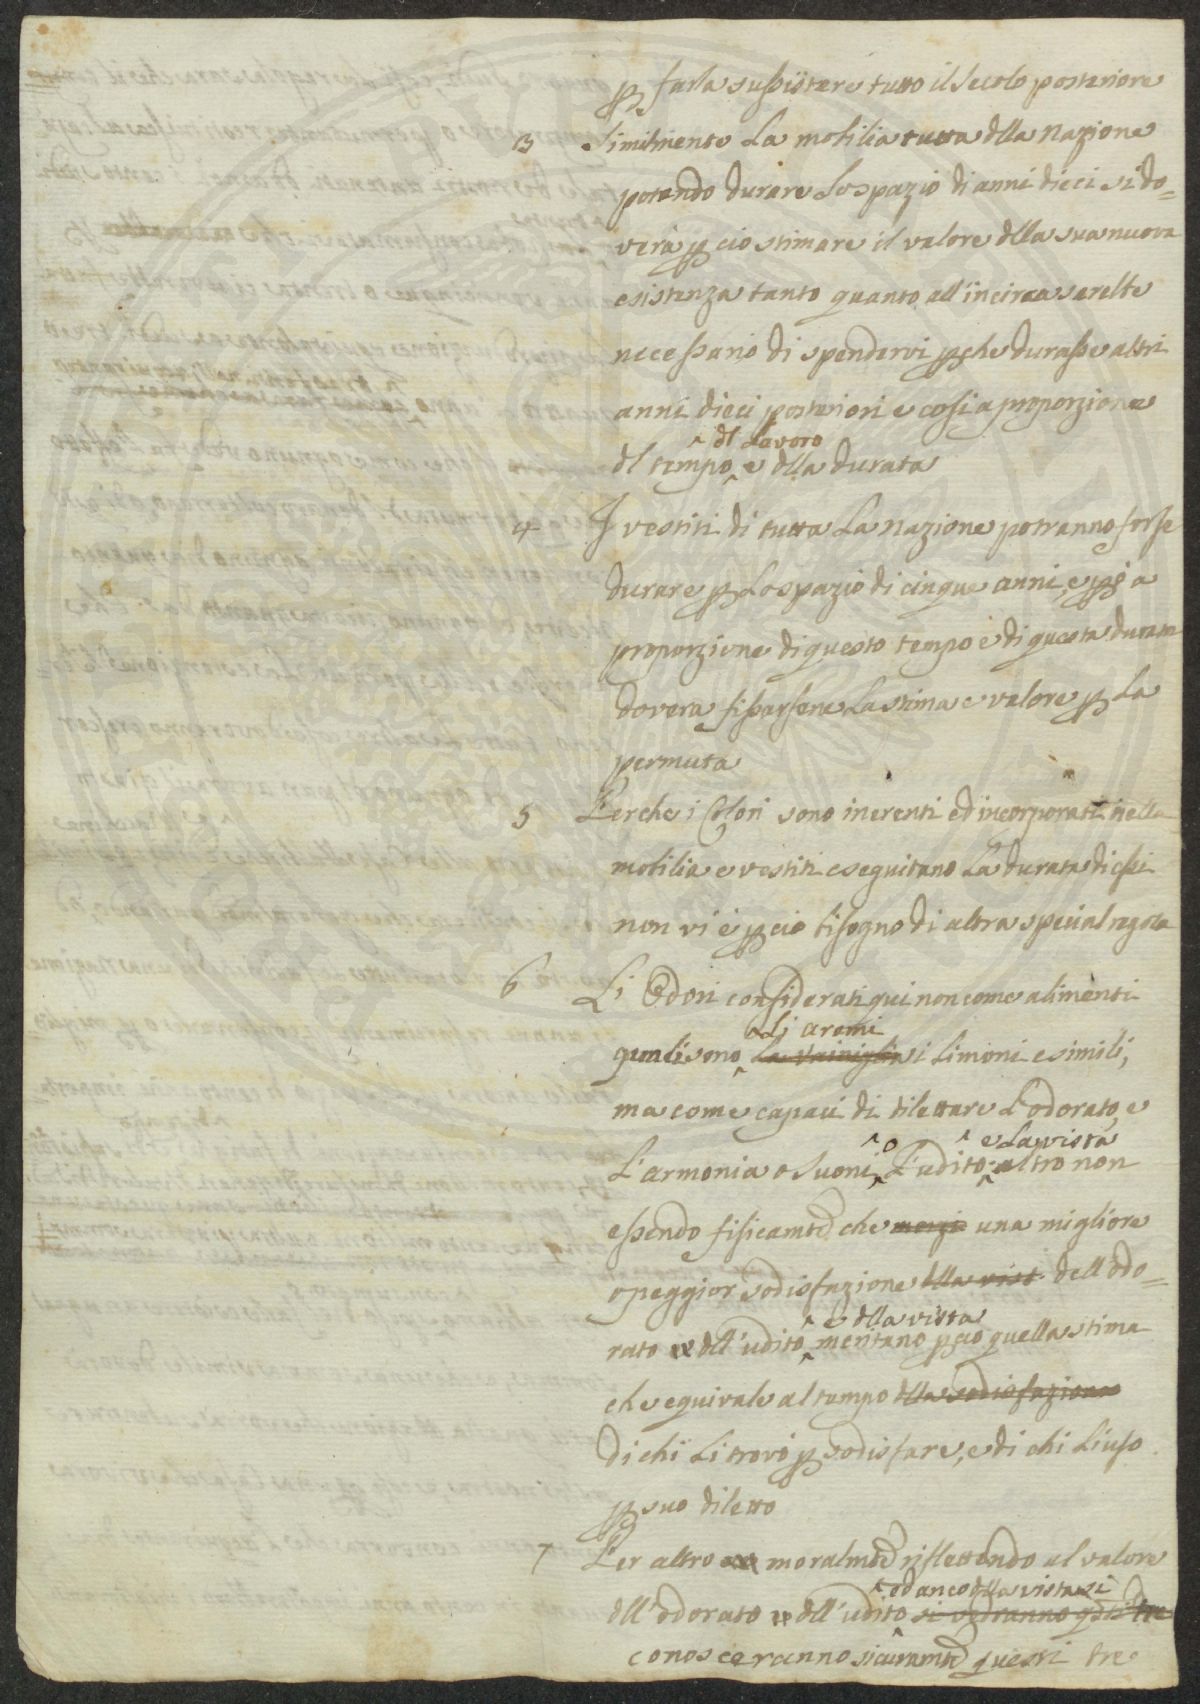 p farla sussistere tutto il secolo posteriore
3 Similmente La mobilia tutta dlla Nazione
potendo durare Lo spazio di anni dieci si do=
verà p ciò stimare il valore dlla sua nuova
esistenza tanto quanto all'incirca sarebbe
necessario di spendervi pche durasse altri
anni dieci posteriori e cosi a proporzione
^dl Lavoro
dl tempo e dlla durata
4 I vestiti di tutta La Nazione potranno forse
durare p Lo spazio di cinque anni, e a
proporzione di questo tempo e di questa durata
dovera fissarsene La stima e valore p La
permuta
5 Perche i Colori sono inerenti ed incorporati nella
mobilia e vestiti e seguitano La durata di essi
non vi è p ciò bisogno di altra special regola
6 Li Odori considerati qui non come alimenti
Li aromi
quali sono La Vainiglia i Limoni e simili,
ma come capaci di dilettare L'odorato, e
^o ^e La vista
L'armonia o Suoni L'udito altro non
essendo fisicamte che una migliore
o peggior sodisfazione dlla vist. dell'odo=
^e dlla vista
rato e dll'udito mentano pciò quella stima
che equivale al tempo dlla sodisfazione
di chi Li trovò p sodisfare, e di chi Li usò
p suo diletto
7 Per altro moralmte riflettendo al valore
^ed anco dlla vista si
dll'odorato e dll'udito si vedranno qsti tre
conosceranno sicuramte questi tre